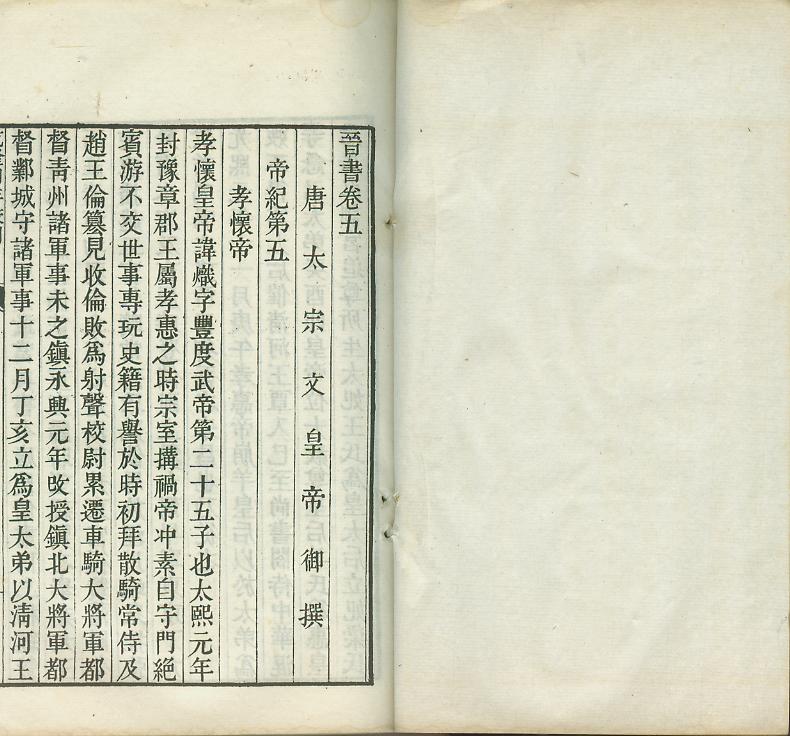 晉書卷五
唐太宗文皇帝御撰
帝紀第五
孝懷帝
孝懷皇帝諱熾字豐度武帝第二十五子也太熙元年
封豫章郡王屬孝惠之時宗室搆禍帝沖素自守門絶
賓游不交世事專玩史籍有譽於時初拜散騎常侍及
趙王倫篡見收倫敗爲射聲校尉累遷車騎大將軍都
督靑州諸軍事未之鎭永興元年改授鎭北大將軍都
督鄴城守諸軍事十二月丁亥立爲皇太弟以淸河王